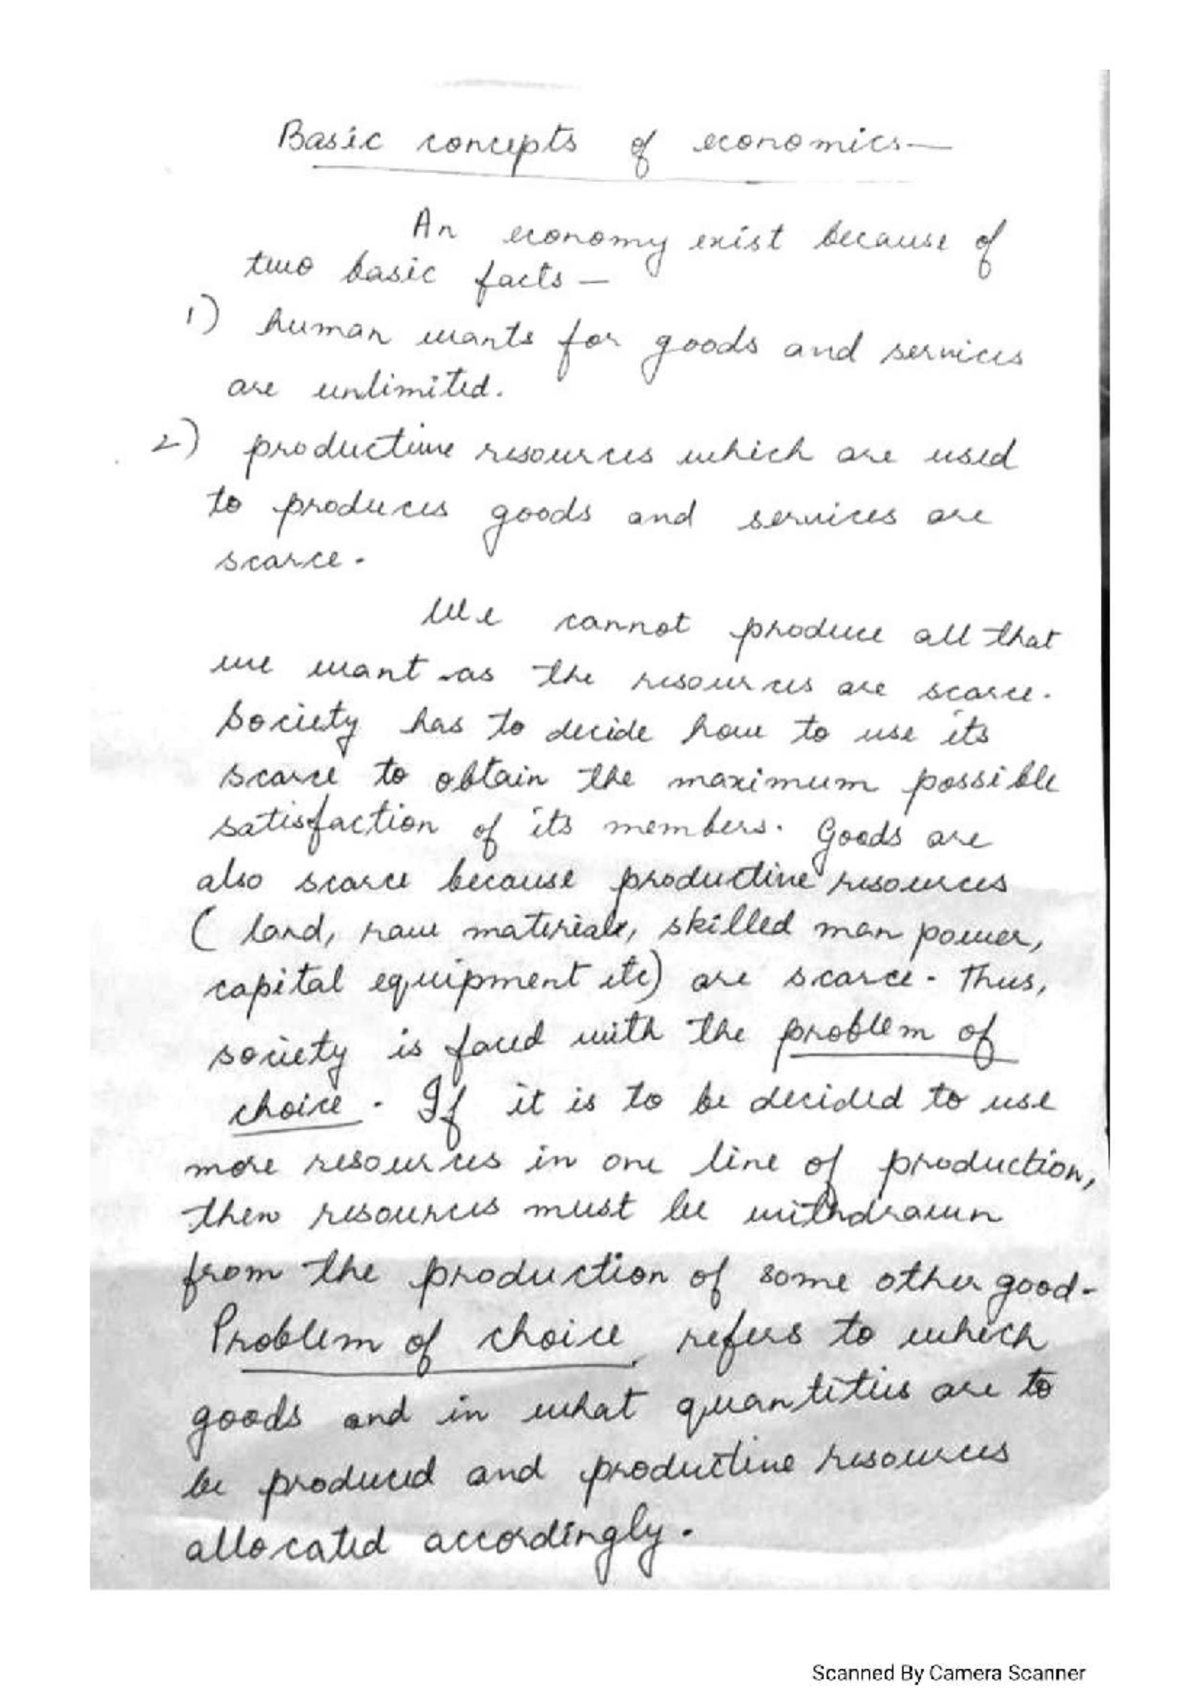 Basic concepts of economics—
An economy exist because of
two basic facts —
1) human wants for goods and services
are unlimited.
2) productive resources which are used
to produces goods and services are
scarce.
We cannot produce all that
we want as the resources are scarce.
Society has to decide how to use its
scarce to obtain the maximum possible
satisfaction of its members. Goods are
also scarce because productive resources
( land, raw materials, skilled man power,
capital equipment etc) are scarce. Thus,
society is faced with the problem of
choice. If it is to be decided to use
more resources in one line of production,
then resources must be withdrawn
from the production of some other good.
Problem of choice refers to which
goods and in what quantities are to
be produced and productive resources
allocated accordingly.
Scanned By Camera Scanner